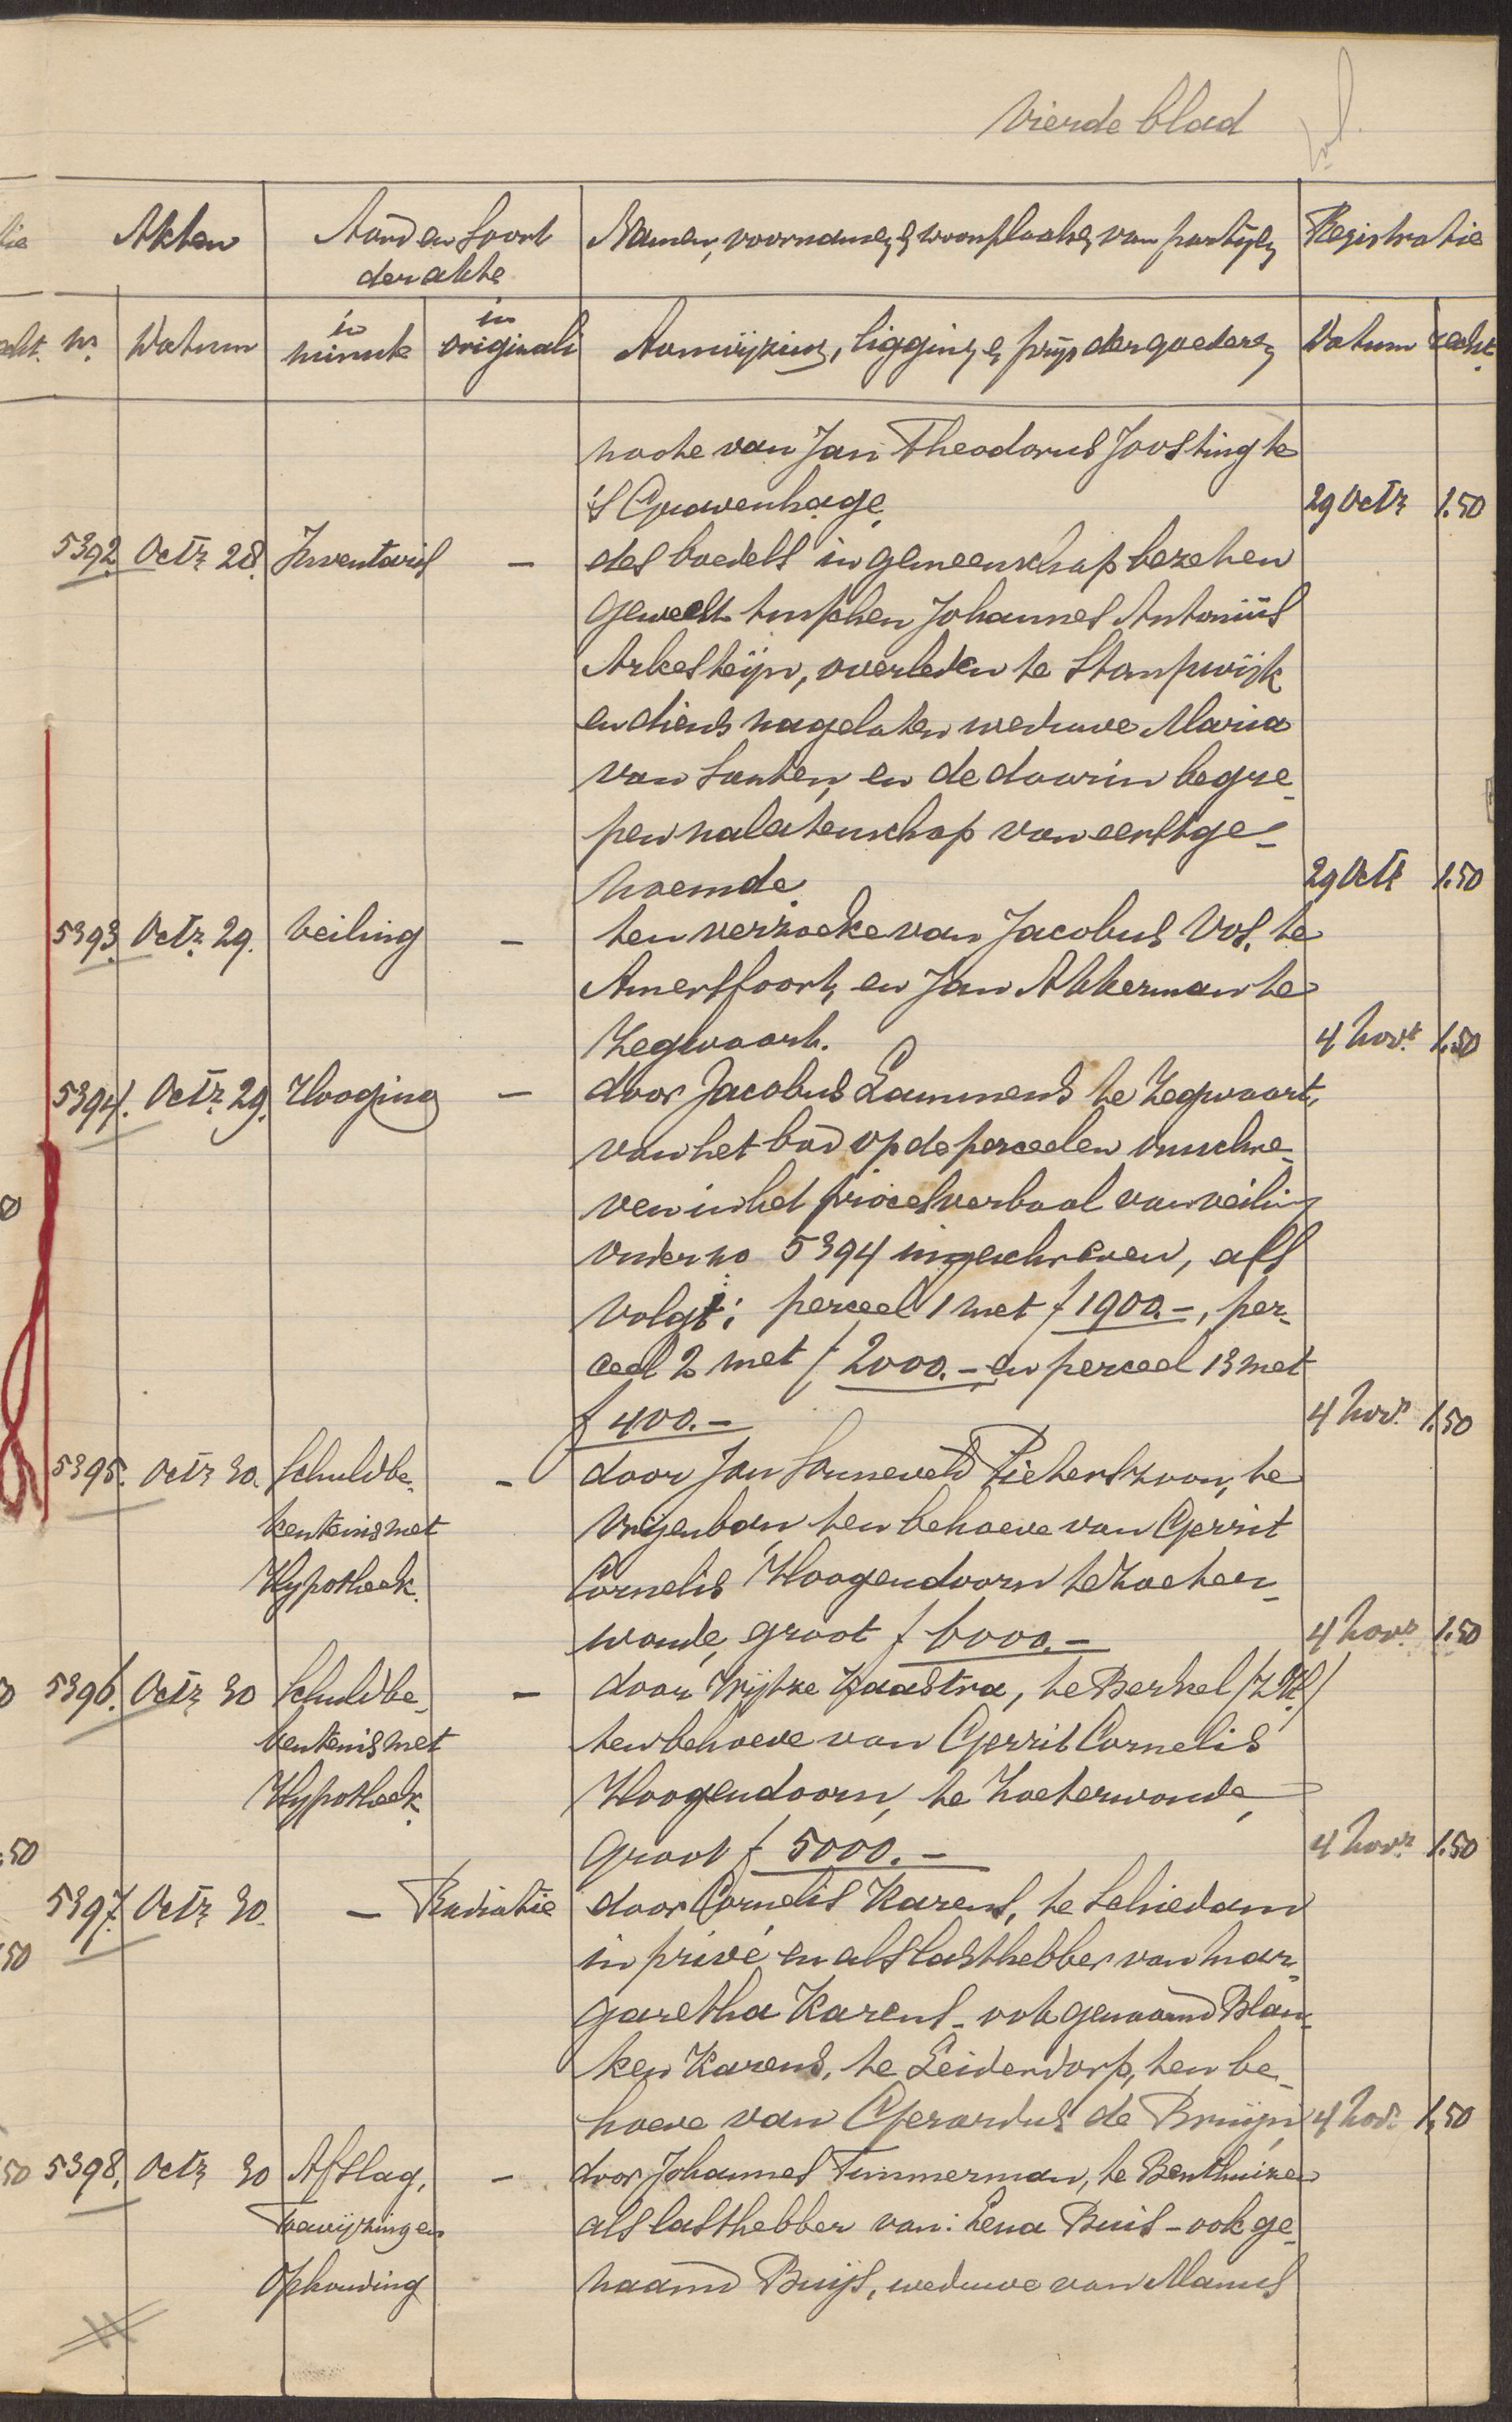 Vierde blad
Akten
Aard en Soort
der akte
Namen, voornamen, & woonplaatsen, van partijen
Registratie
N.
Datum
in
minuut
in
originali
Aanwijzing, ligging & prijs der goederen
Datum
recht.
noote van Jan Theodorus Joosting te
's Gravenhage.
29 Octr 1.50
5392. Octr 28. Inventaris — des boedels in gemeenschap bezeten
geweest tusschen Johannes Antonius
Arkesteijn, overleden te Stompwijk
en diens nagelaten weduwe Maria
van Santen, en de daarin begre-
pen nalatenschap van eerstge-
noemde.
29 Octr 1.50
5393. Octr. 29. Veiling — ten verzoeke van Jacobus Vos, te
Amersfoort, en Jan Akkerman te
Zegwaart.
4 Novr. 1.50
5394. Octr. 29. Hooging — door Jacobus Lammens te Zegwaart,
van het bod op de perceelen omschre-
ven in het procesverbaal van veiling
onder no 5394 ingeschreven, als
volgt: perceel 1 met f 1900.—, per-
ceel 2 met f 2000.— en perceel 13 met
f 400.—
4 Novr. 1.50
5395. Octr 30. Schuldbe- — door Jan Sonneveld Pieterszoon, te
kentenis met Vrijenban, ten behoeve van Gerrit
Hypotheek. Cornelis Hoogendoorn te Zoeter-
woude, groot f 6000.—
4 Novr. 1.50
5396. Octr 30 Schuldbe- — door Wijtze Kaastra, te Berkel (Z.H.)
kentenis met ten behoeve van Gerrit Cornelis
Hypotheek. Hoogendoorn, te Zoeterwoude,
groot f 5000.—
4 Novr. 1.50
5397. Octr 30. — Radiatie door Cornelis Karens, te Schiedam
in privé en als lasthebber van Mar-
garetha Karens - ook genaamd Blan-
ken Karens, te Leiderdorp, ten be-
hoeve van Gerardus de Bruijn
4 Nov. 1.50
5398. Octr 30 Afslag, — door Johannes Timmerman, te Benthuizen
Toewijzing en als lasthebber van: Lena Buis - ook ge-
Ophouding naamd Buijs, weduwe van Manus